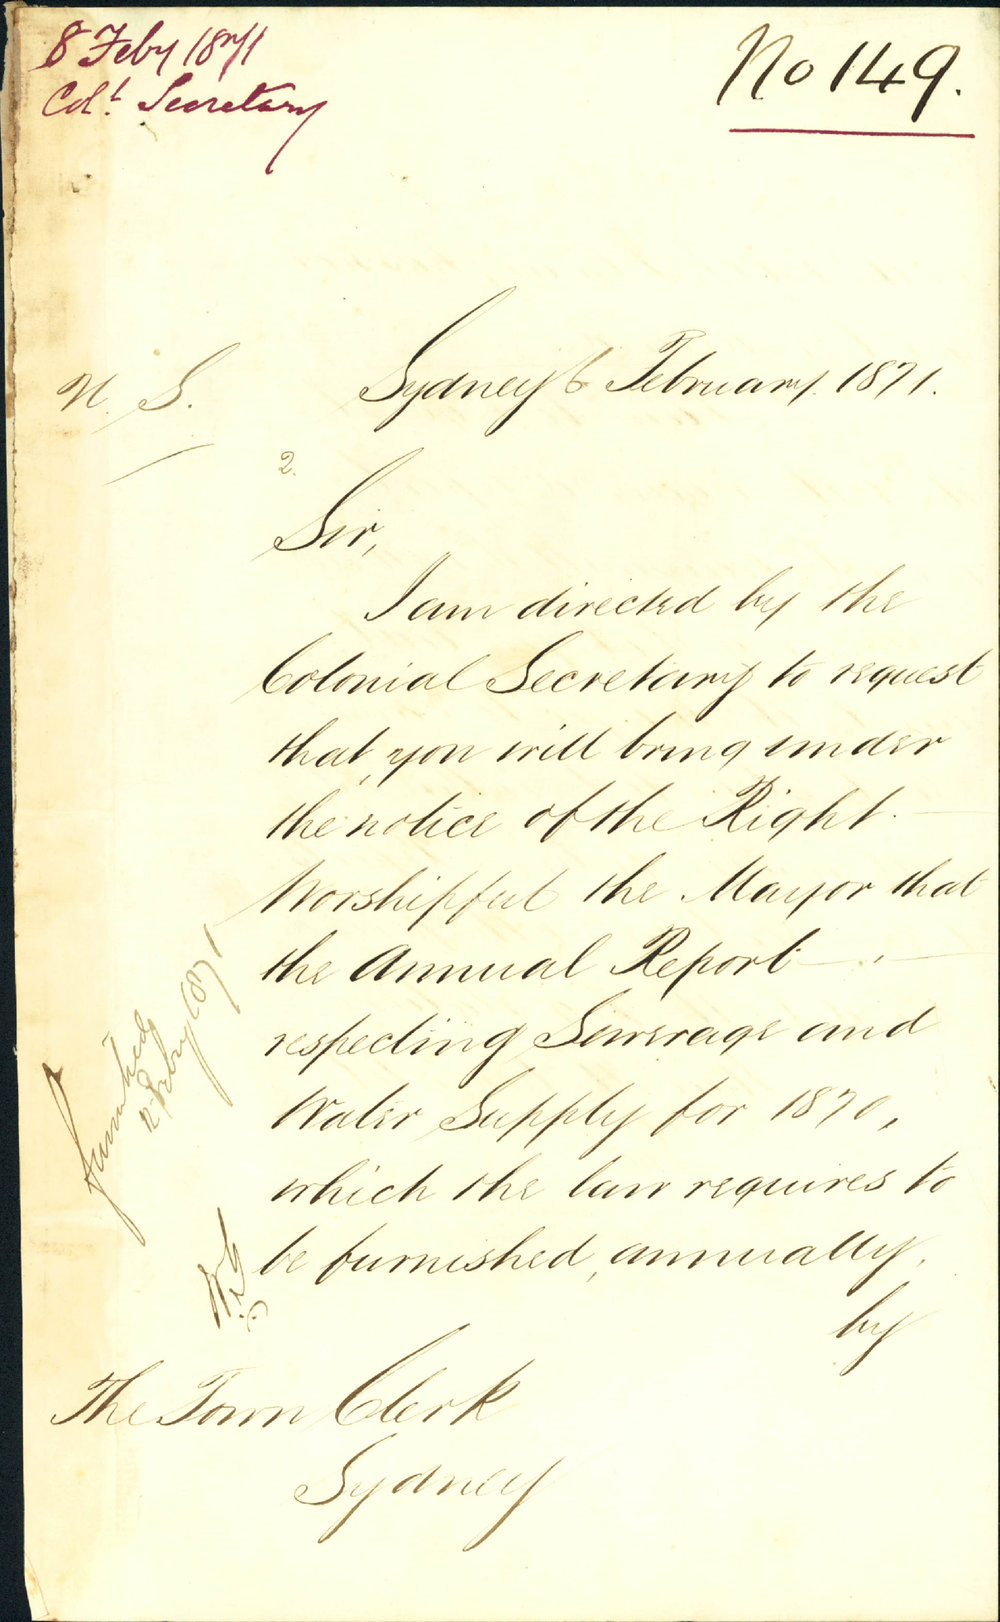 8 Feby 1871
Col.l Secretary
No 149.
Sydney 6 February. 1871.
N. S.
2.
Sir,
I am directed by the
Colonial Secretary to request
that, you will bring under
the notice of the Right.
Worshipful the Mayor that
the Annual Report
respecting Sewerage and
Water Supply for 1870,
which the law requires to
be furnished, annually,
by
The Town Clerk
Sydney
furnished
Feby 1871